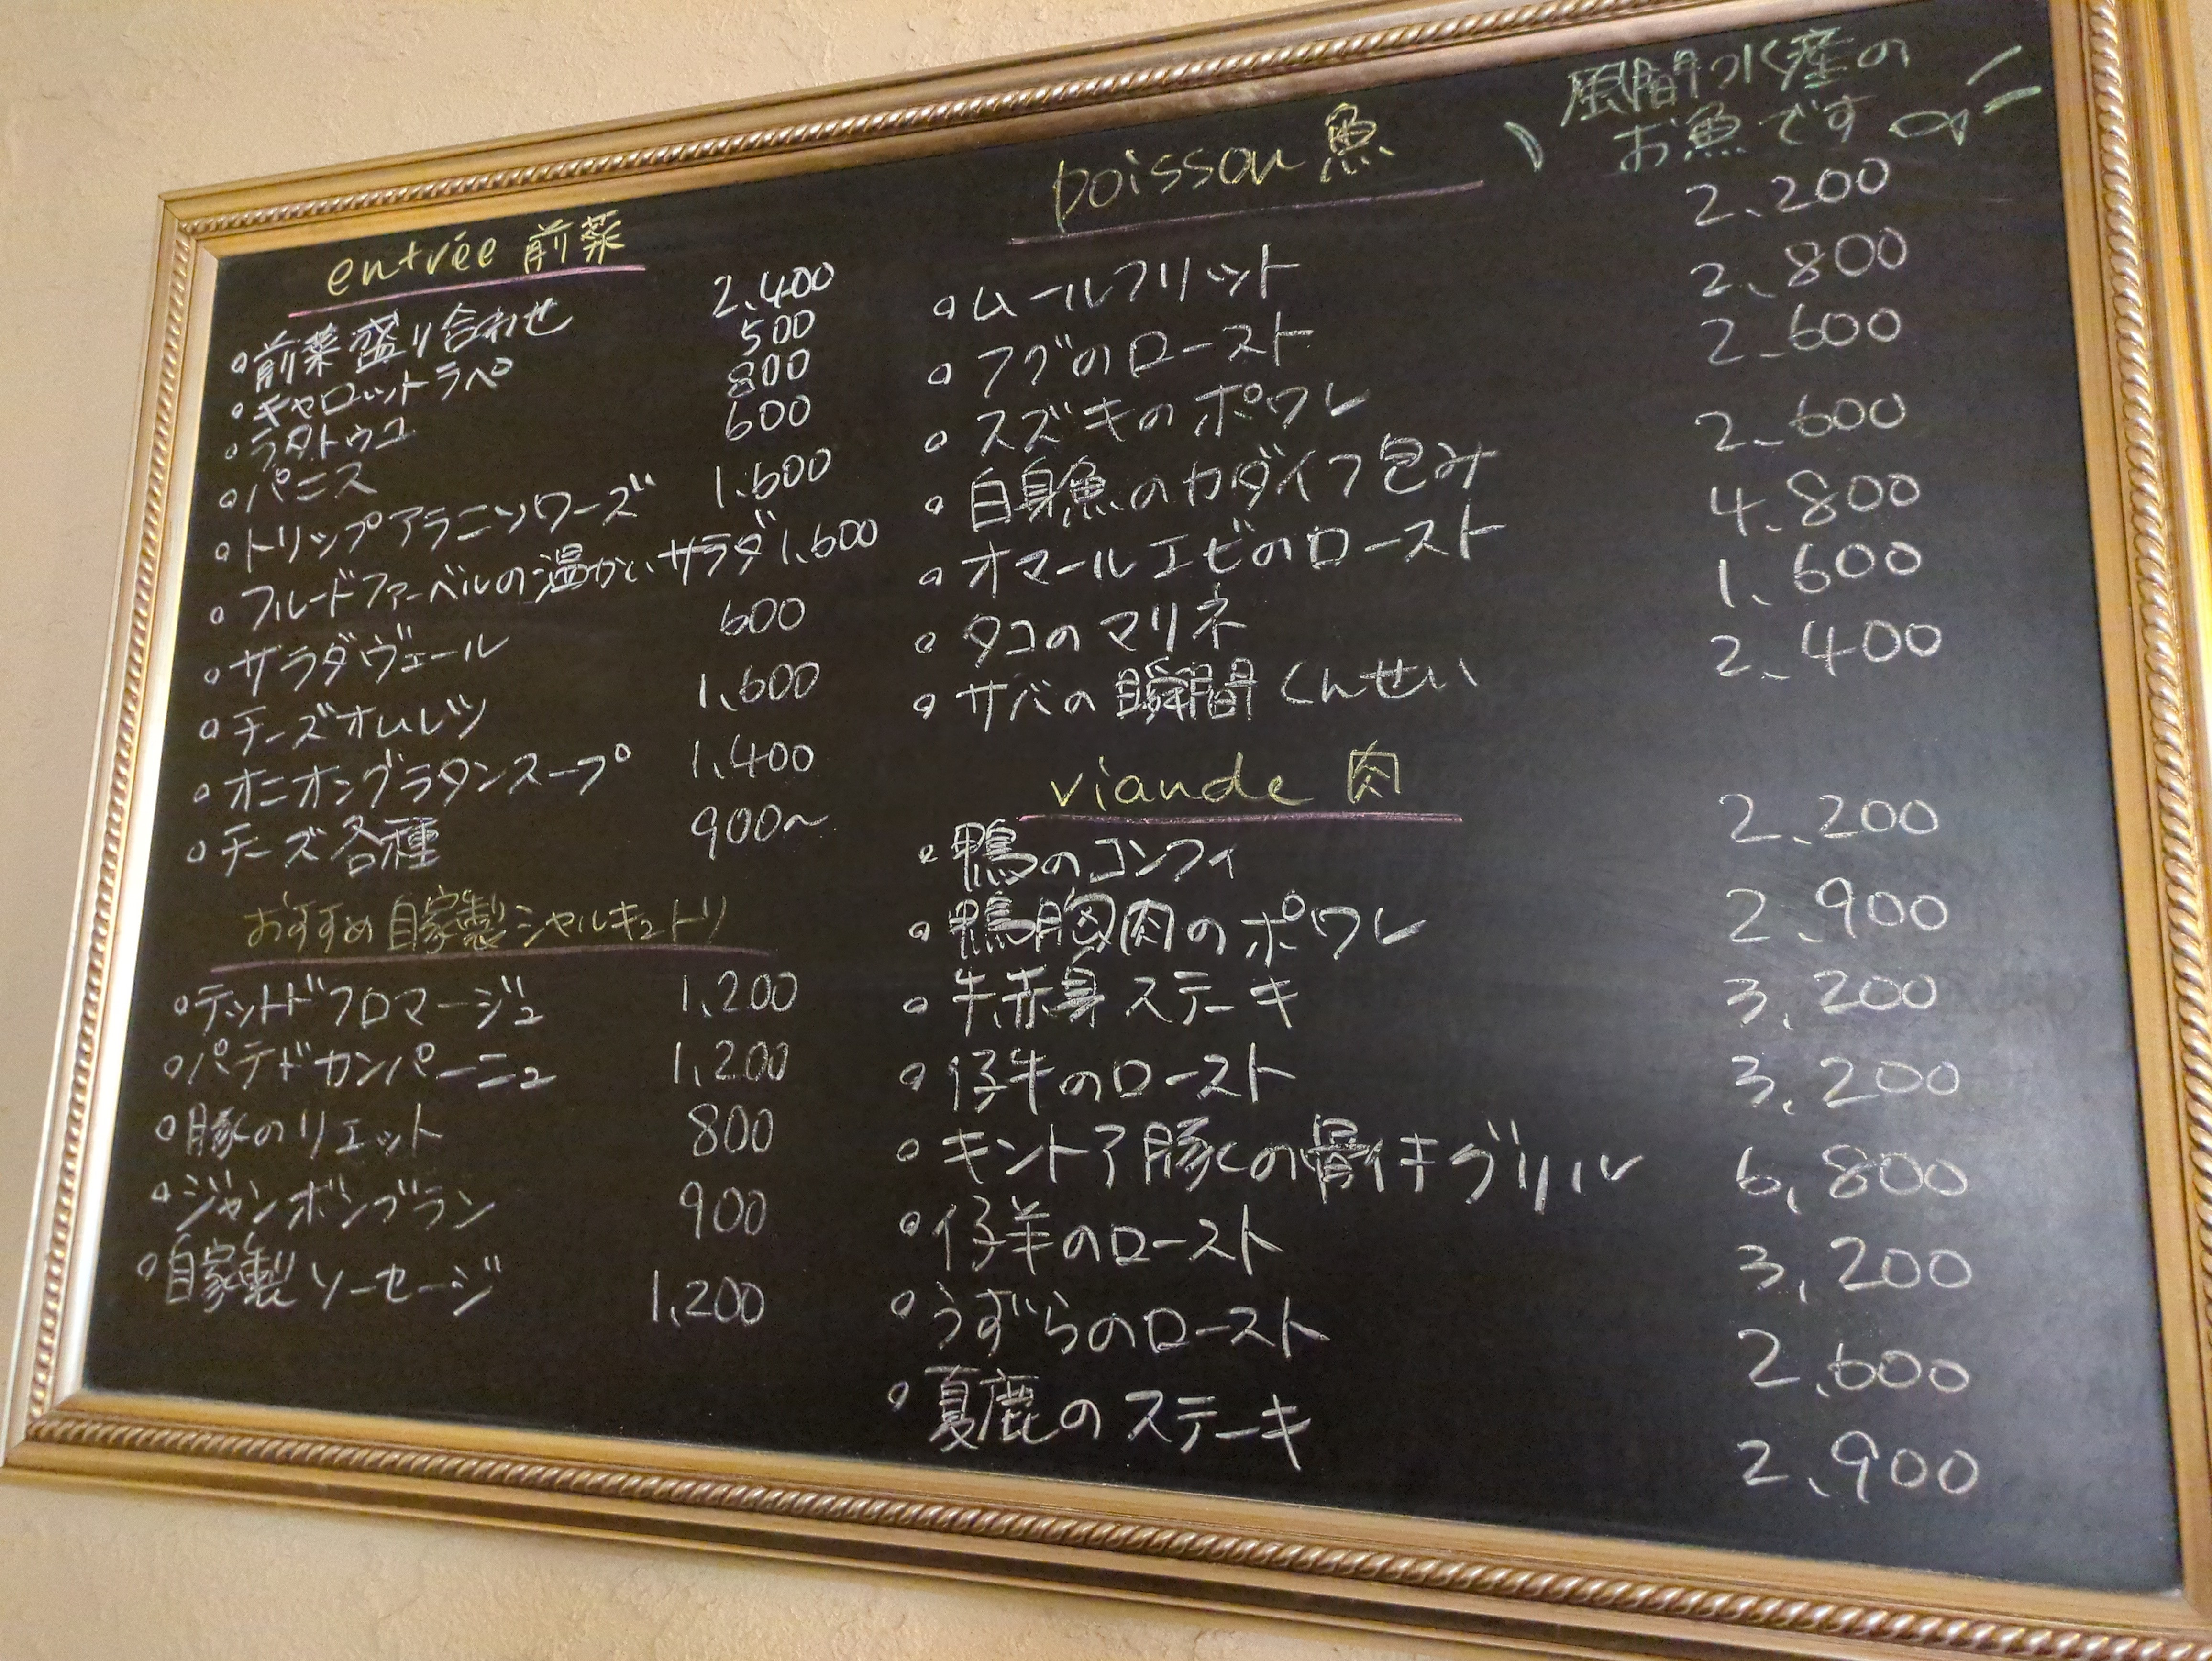 entrée 前菜
・前菜盛り合わせ 2,400
・キャロットラペ 500
・ラタトゥユ 800
・パニス 600
・トリップアラニソワーズ 1,600
・フルードファーベルの温かいサラダ 1,600
・サラダヴェール 600
・チーズオムレツ 1,600
・オニオングラタンスープ 1,400
・チーズ各種 900~
おすすめ自家製シャルキュトリ
・テットドフロマージュ 1,200
・パテドカンパーニュ 1,200
・豚のリエット 800
・ジャンボンブラン 900
・自家製ソーセージ 1,200
poisson 魚
風間水産の
お魚です
・ムールフリット 2,200
・フグのロースト 2,800
・スズキのポワレ 2,600
・白身魚のカダイフ包み 2,600
・オマールエビのロースト 4,800
・タコのマリネ 1,600
・サバの瞬間くんせい 2,400
viande 肉
・鴨のコンフィ 2,200
・鴨胸肉のポワレ 2,900
・牛赤身ステーキ 3,200
・仔牛のロースト 3,200
・キントア豚の骨付キグリル 6,800
・仔羊のロースト 3,200
・うずらのロースト 2,600
・夏鹿のステーキ 2,900